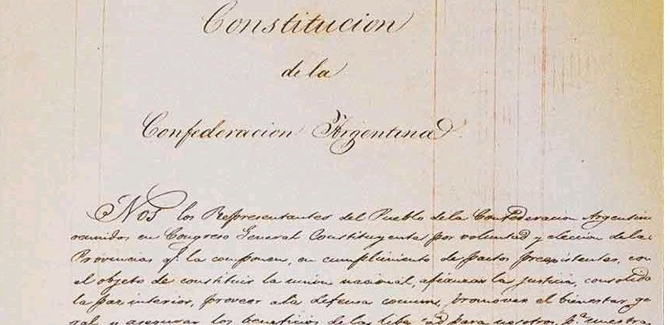 Constitucion
de la
Confederacion Argentina
Nos los Representantes del Pueblo de la Confederacion Argentin
reunidos en Congreso General Constituyente por voluntad y eleccion de las
Provincias q.e la componen, en cumplimiento de pactos preexistentes, con
el objeto de constituir la union nacional, afianzar la justicia, consolida
la paz interior, proveer a la defensa comun, promover el bienestar ge
ral y asegurar los beneficios de la libertad para nosotros, p.a nuestra